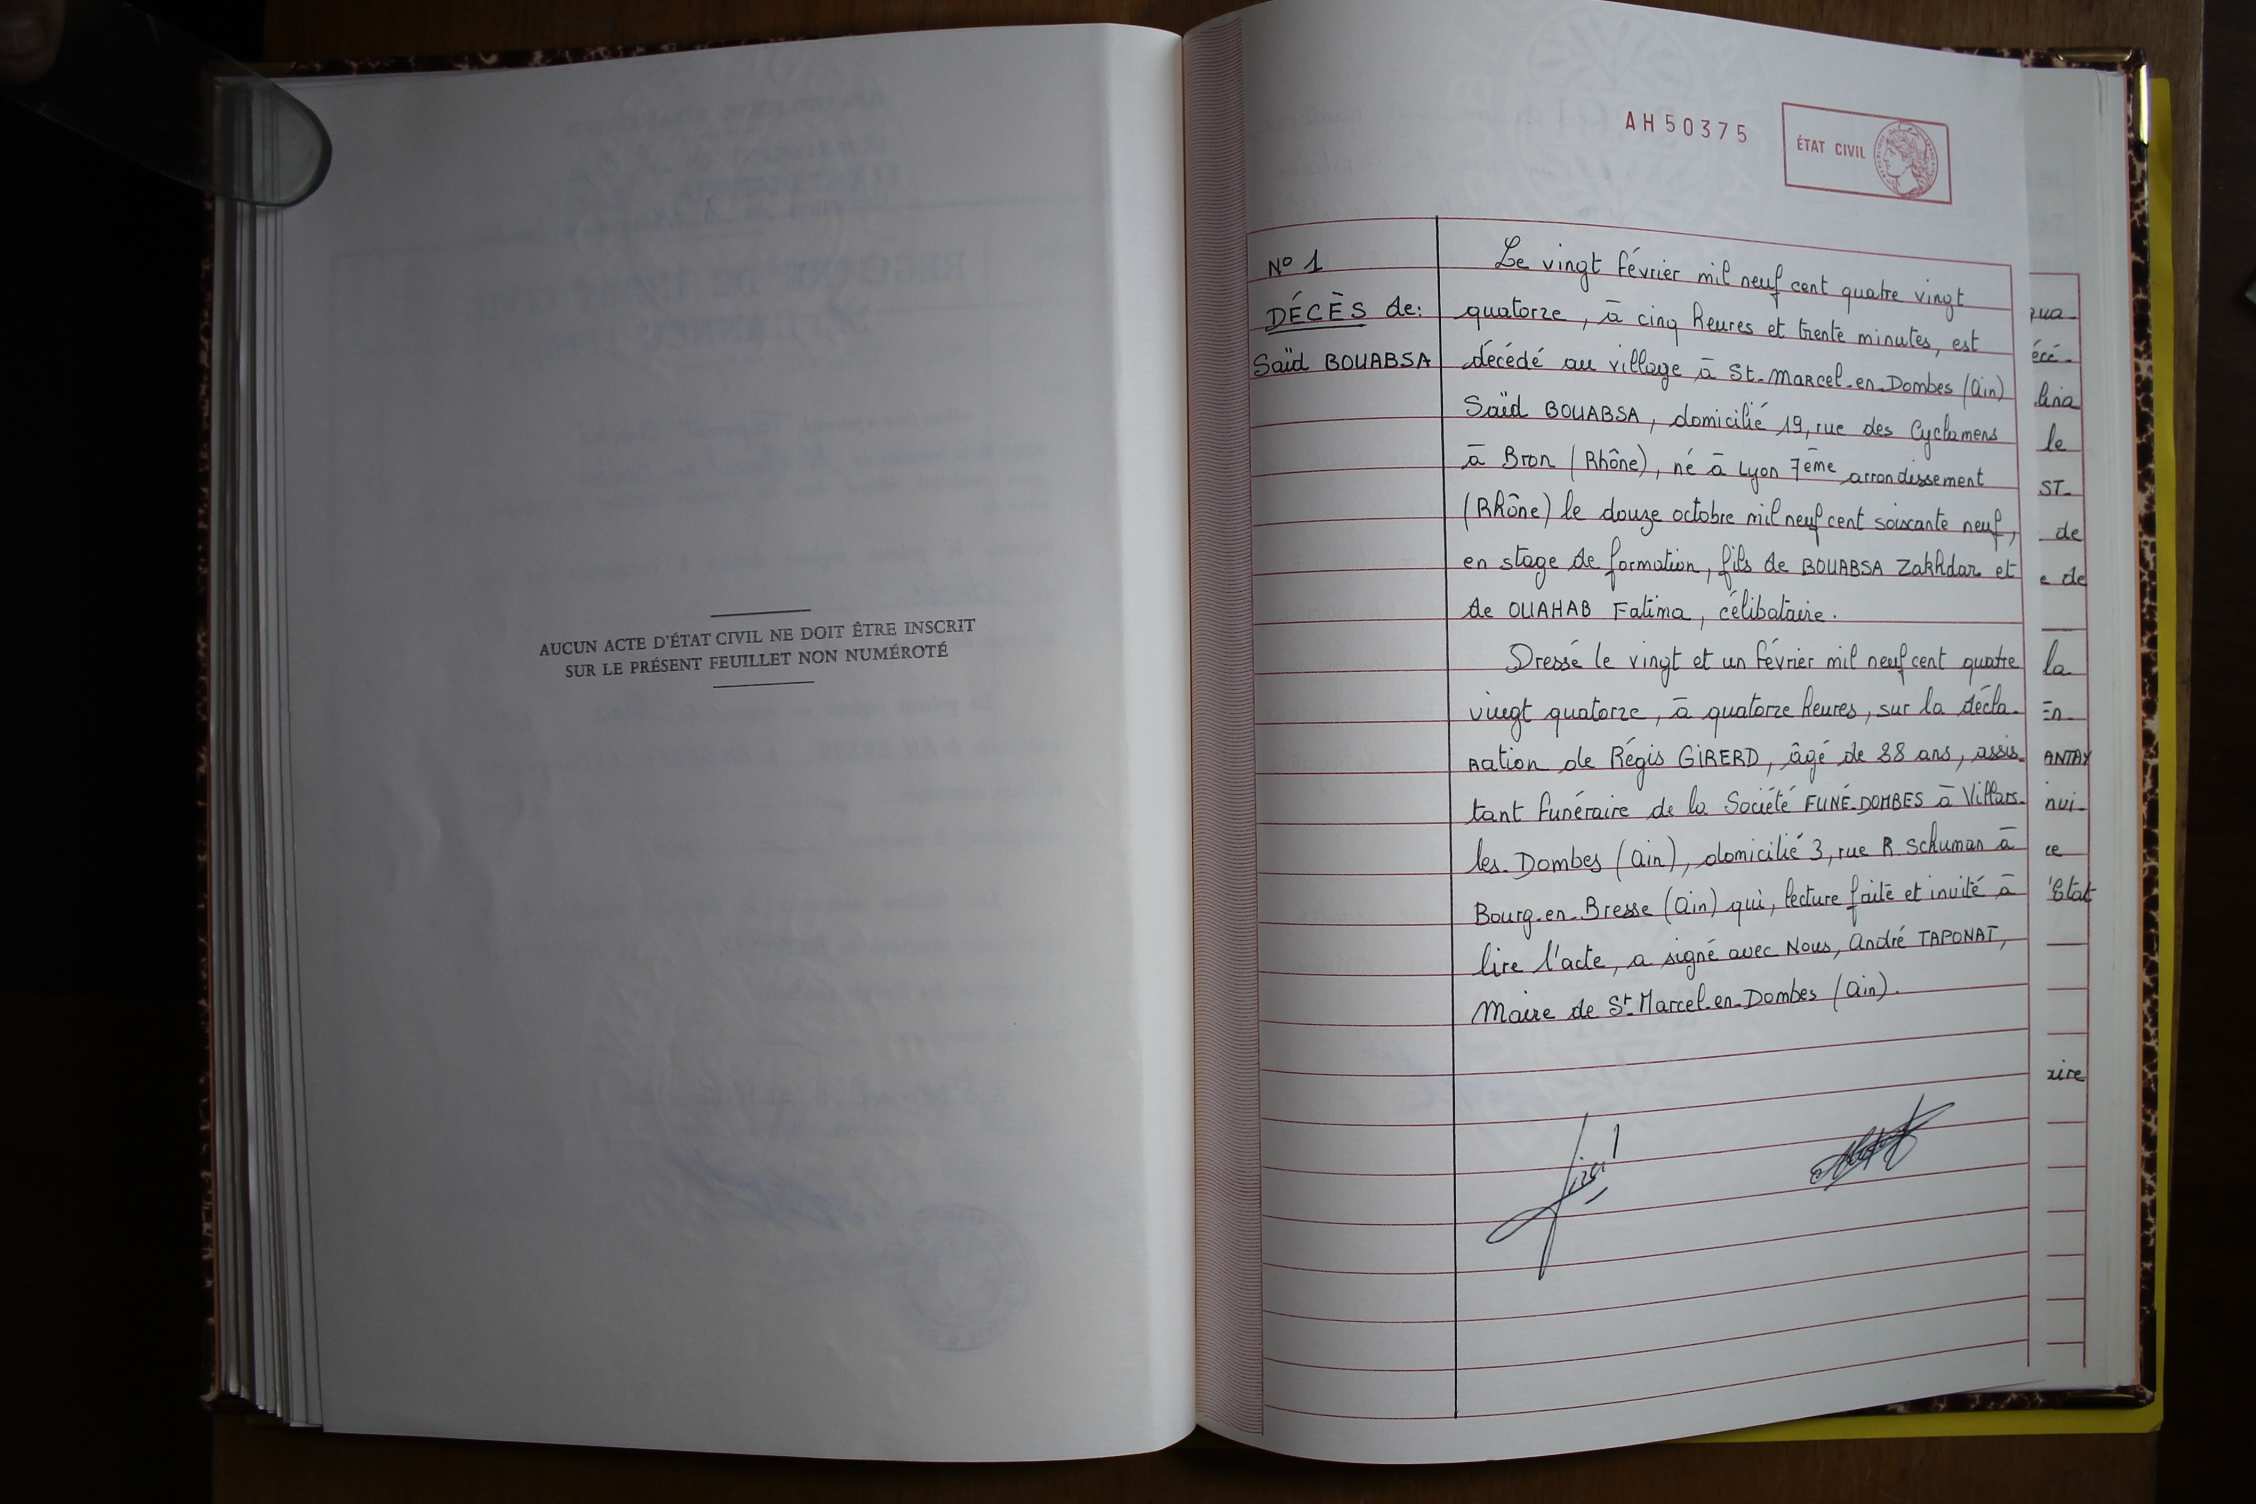 AUCUN ACTE D'ÉTAT CIVIL NE DOIT ÊTRE INSCRIT
SUR LE PRÉSENT FEUILLET NON NUMÉROTÉ
AH50375
ÉTAT CIVIL
No 1
DÉCÈS de:
Saïd BOUABSA
Le vingt février mil neuf cent quatre vingt
quatorze, à cinq heures et trente minutes, est
décédé au village à St-Marcel-en-Dombes (Ain)
Saïd BOUABSA, domicilié 19, rue des Cyclamens
à Bron (Rhône), né à Lyon 7ème arrondissement
(Rhône) le douze octobre mil neuf cent soixante neuf,
en stage de formation, fils de BOUABSA Zakhdar et
de OUAHAB Fatima, célibataire.
Dressé le vingt et un février mil neuf cent quatre
vingt quatorze, à quatorze heures, sur la décla-
ration de Régis GIRERD, âgé de 38 ans, assis-
tant funéraire de la Société FUNÉ-DOMBES à Villars-
les-Dombes (Ain), domicilié 3, rue R Schuman à
Bourg-en-Bresse (Ain) qui, lecture faite et invité à
lire l'acte, a signé avec Nous, André TAPONAT,
Maire de St-Marcel-en-Dombes (Ain).
qua-
écé-
lina
le
ST-
de
e de
la
En-
ANTAY
nvi-
ce
'Etat
aire